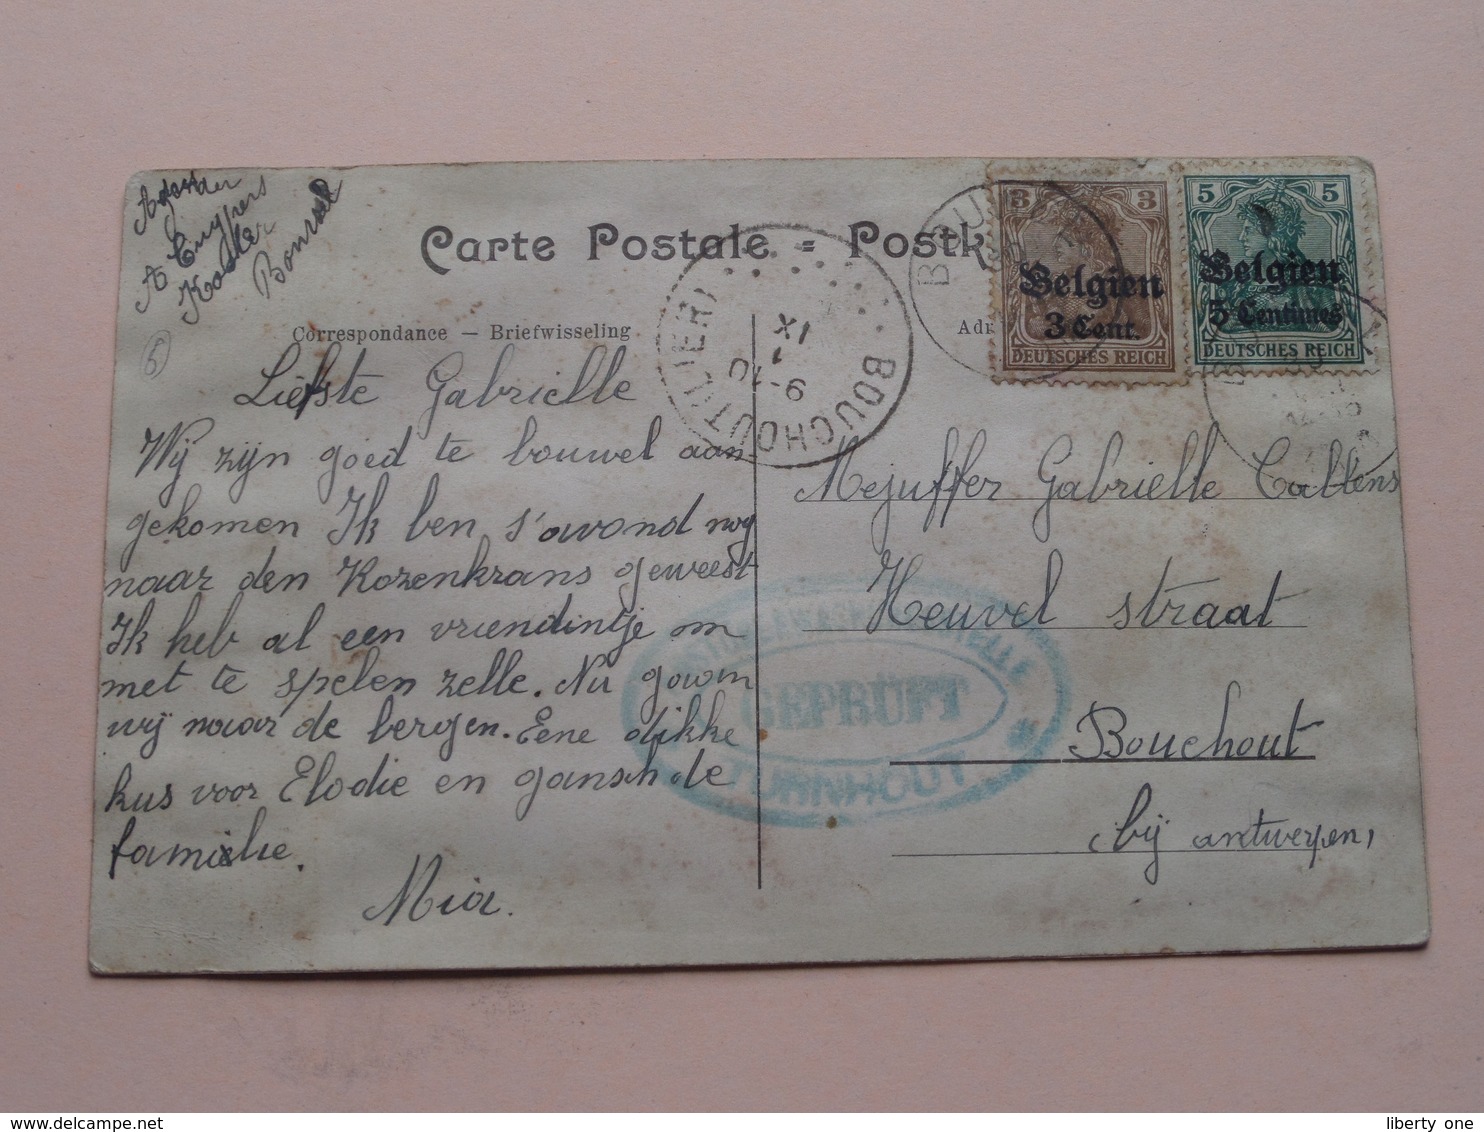 A Cuypers
Carte Postale = Postk
Correspondance — Briefwisseling
Adr
3 3
Belgien
3 Cent.
DEUTSCHES REICH
5 5
Belgien
5 Centimes
DEUTSCHES REICH
BOUCHOUT (LIER)
XI
9-10
6
Liefste Gabrielle
Wij zijn goed te bouwel aan-
gekomen Ik ben s'avond nog
naar den Rozenkrans geweest
Ik heb al een vriendintje om
met te spelen zelle. Nu gown
wij naar de bergen. Eene dikke
kus voor Elodie en gansch de
familie.
Mia.
Mejuffer Gabrielle Callens
Heuvel straat
Bouchout
bij antwerpen,
GEPRÜFT
TURNHOUT
liberty one